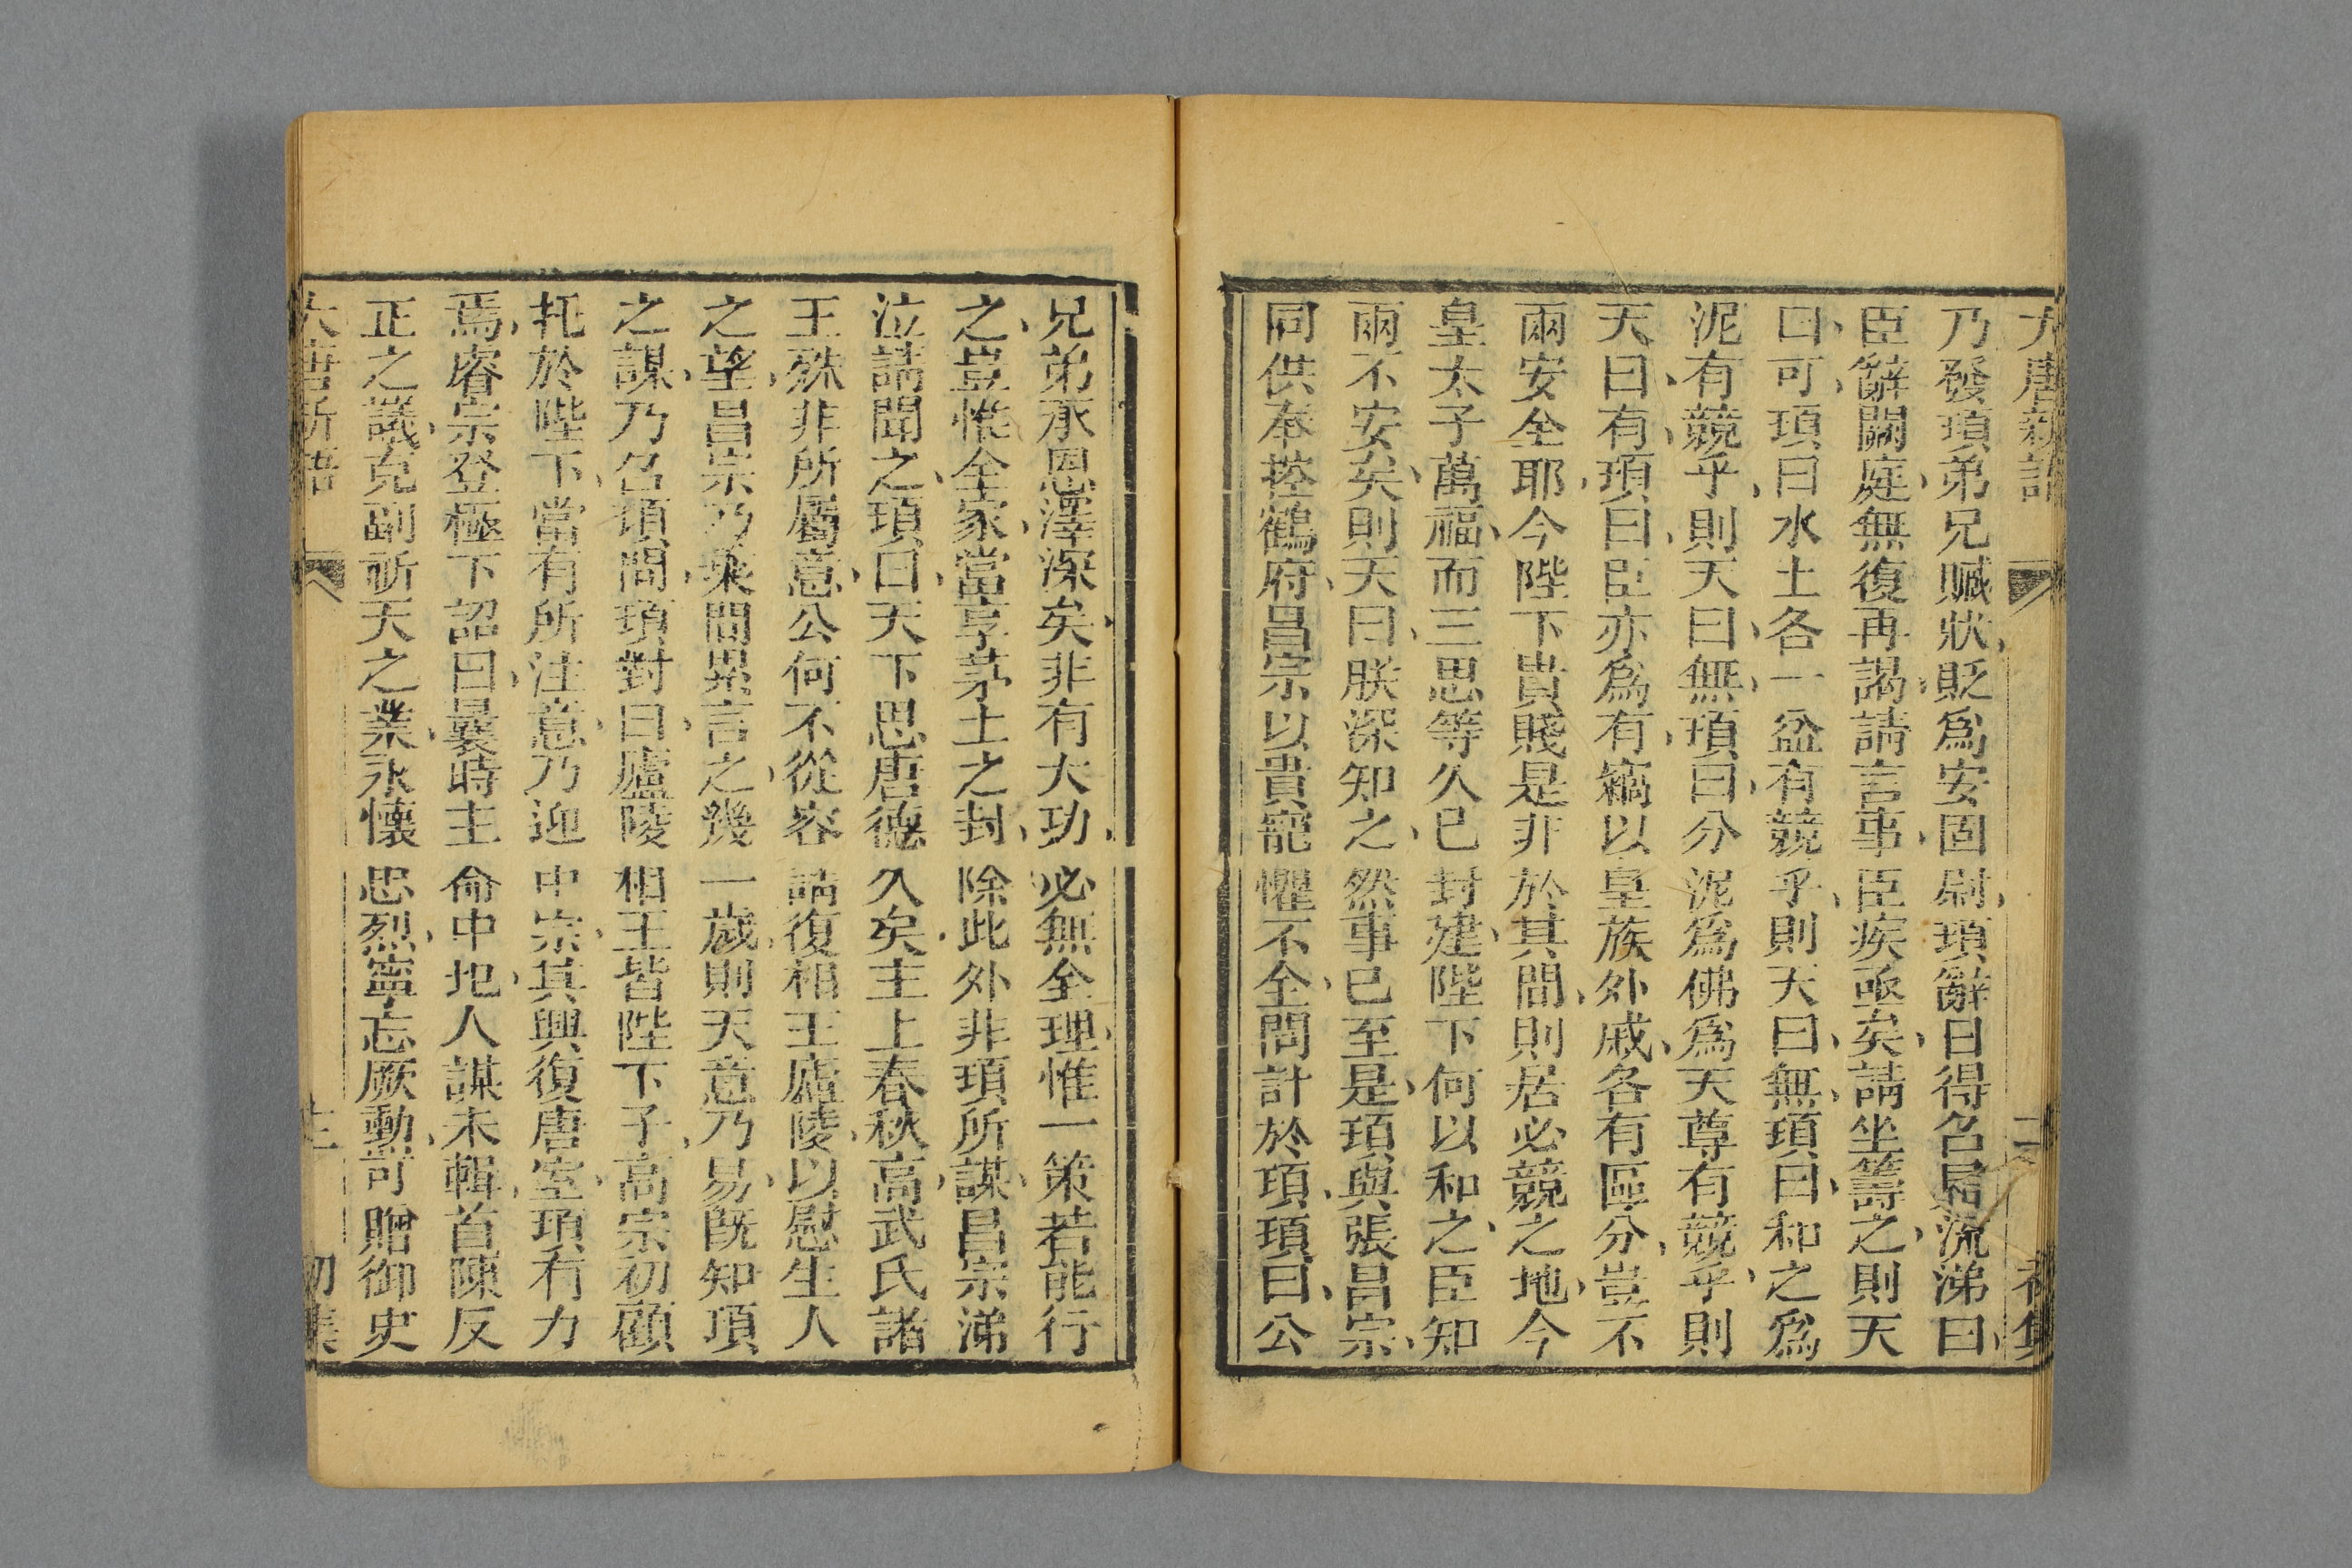 大唐新語 二 初集
乃發頊弟兄贓狀、貶爲安固尉、頊辭日得召見流涕曰、
臣辭闕庭、無復再謁、請言事、臣疾亟矣、請坐籌之、則天
曰、可、頊曰水土各一盆有競乎、則天曰、無、頊曰、和之爲
泥有競乎、則天曰、無、頊曰、分泥爲佛爲天尊有競乎、則
天曰、有、頊曰、臣亦爲有、竊以皇族外戚、各有區分、豈不
兩安全耶、今陛下貴賤是非於其間、則居必競之地、今
皇太子萬福、而三思等久已封建、陛下何以和之、臣知
兩不安矣、則天曰、朕深知之、然事已至是、頊與張昌宗、
同供奉控鶴府、昌宗以貴寵懼不全、問計於頊、頊曰、公
兄弟承恩澤深矣、非有大功、必無全理、惟一策若能行
之、豈惟全家、當享茅土之封、除此外非頊所謀、昌宗涕
泣請聞之、頊曰、天下思唐德久矣、主上春秋高、武氏諸
王殊非所屬意、公何不從容請復相王廬陵、以慰生人
之望、昌宗乃乘間累言之、幾一歲、則天意乃易、旣知頊
之謀、乃召頊問、頊對曰、廬陵相王皆陛下子、高宗初顧
托於陛下、當有所注意、乃迎中宗、其興復唐室、頊有力
焉、睿宗登極下詔曰、曩時主命中圯、人謀未輯、首陳反
正之議、克副祈天之業、永懷忠烈、寧忘厥勳、可贈御史
大唐新語 十二 初集